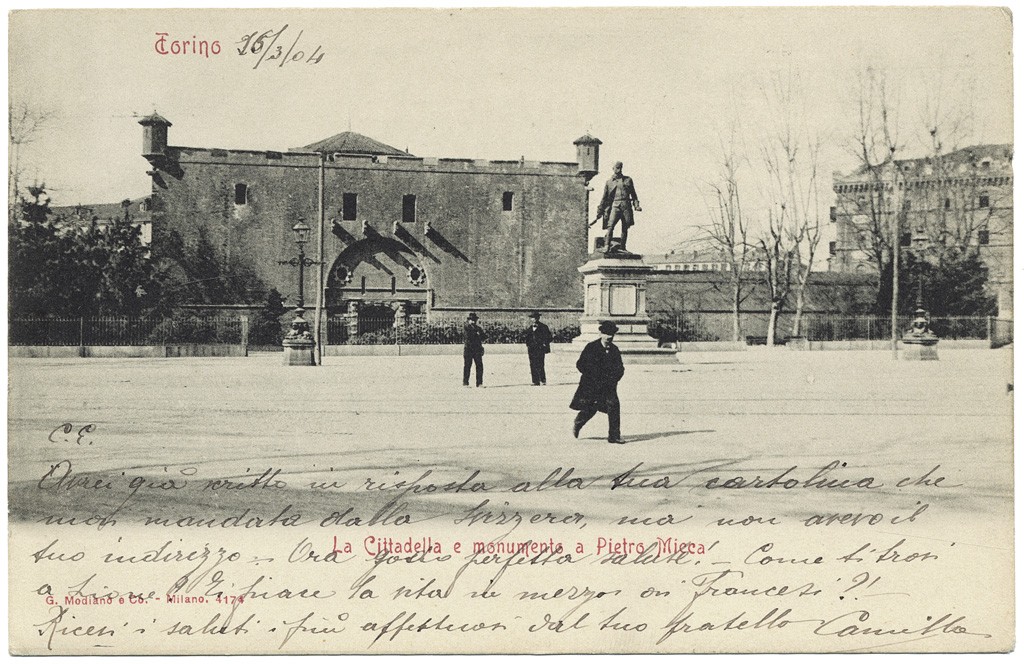 Torino 26/3/04
C. E.
Avrei già scritto in risposta alla tua cartolina che
mandata dalla Svizzera, ma non avevo il
tuo indirizzo. Ora godo perfetta salute! - Come ti trovi
La Cittadella e monumento a Pietro Micca
a Lione? Ti piace la vita in mezzo ai Francesi?!
G. Modiano e Co. - Milano. 4174
Ricevi i saluti i più affettuosi dal tuo fratello Camillo